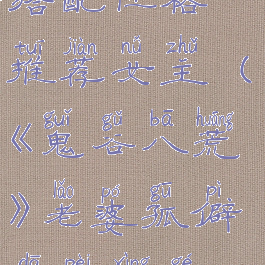 tuī jiàn nǚ zhǔ
推荐女主（
guǐ gǔ bā huāng
《鬼谷八荒
lǎo pó gū pì
》老婆孤僻
dā pèi xìng gé